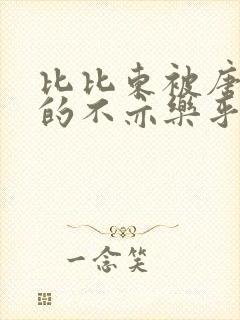 比比东被唐
的不亦乐乎
一念笑